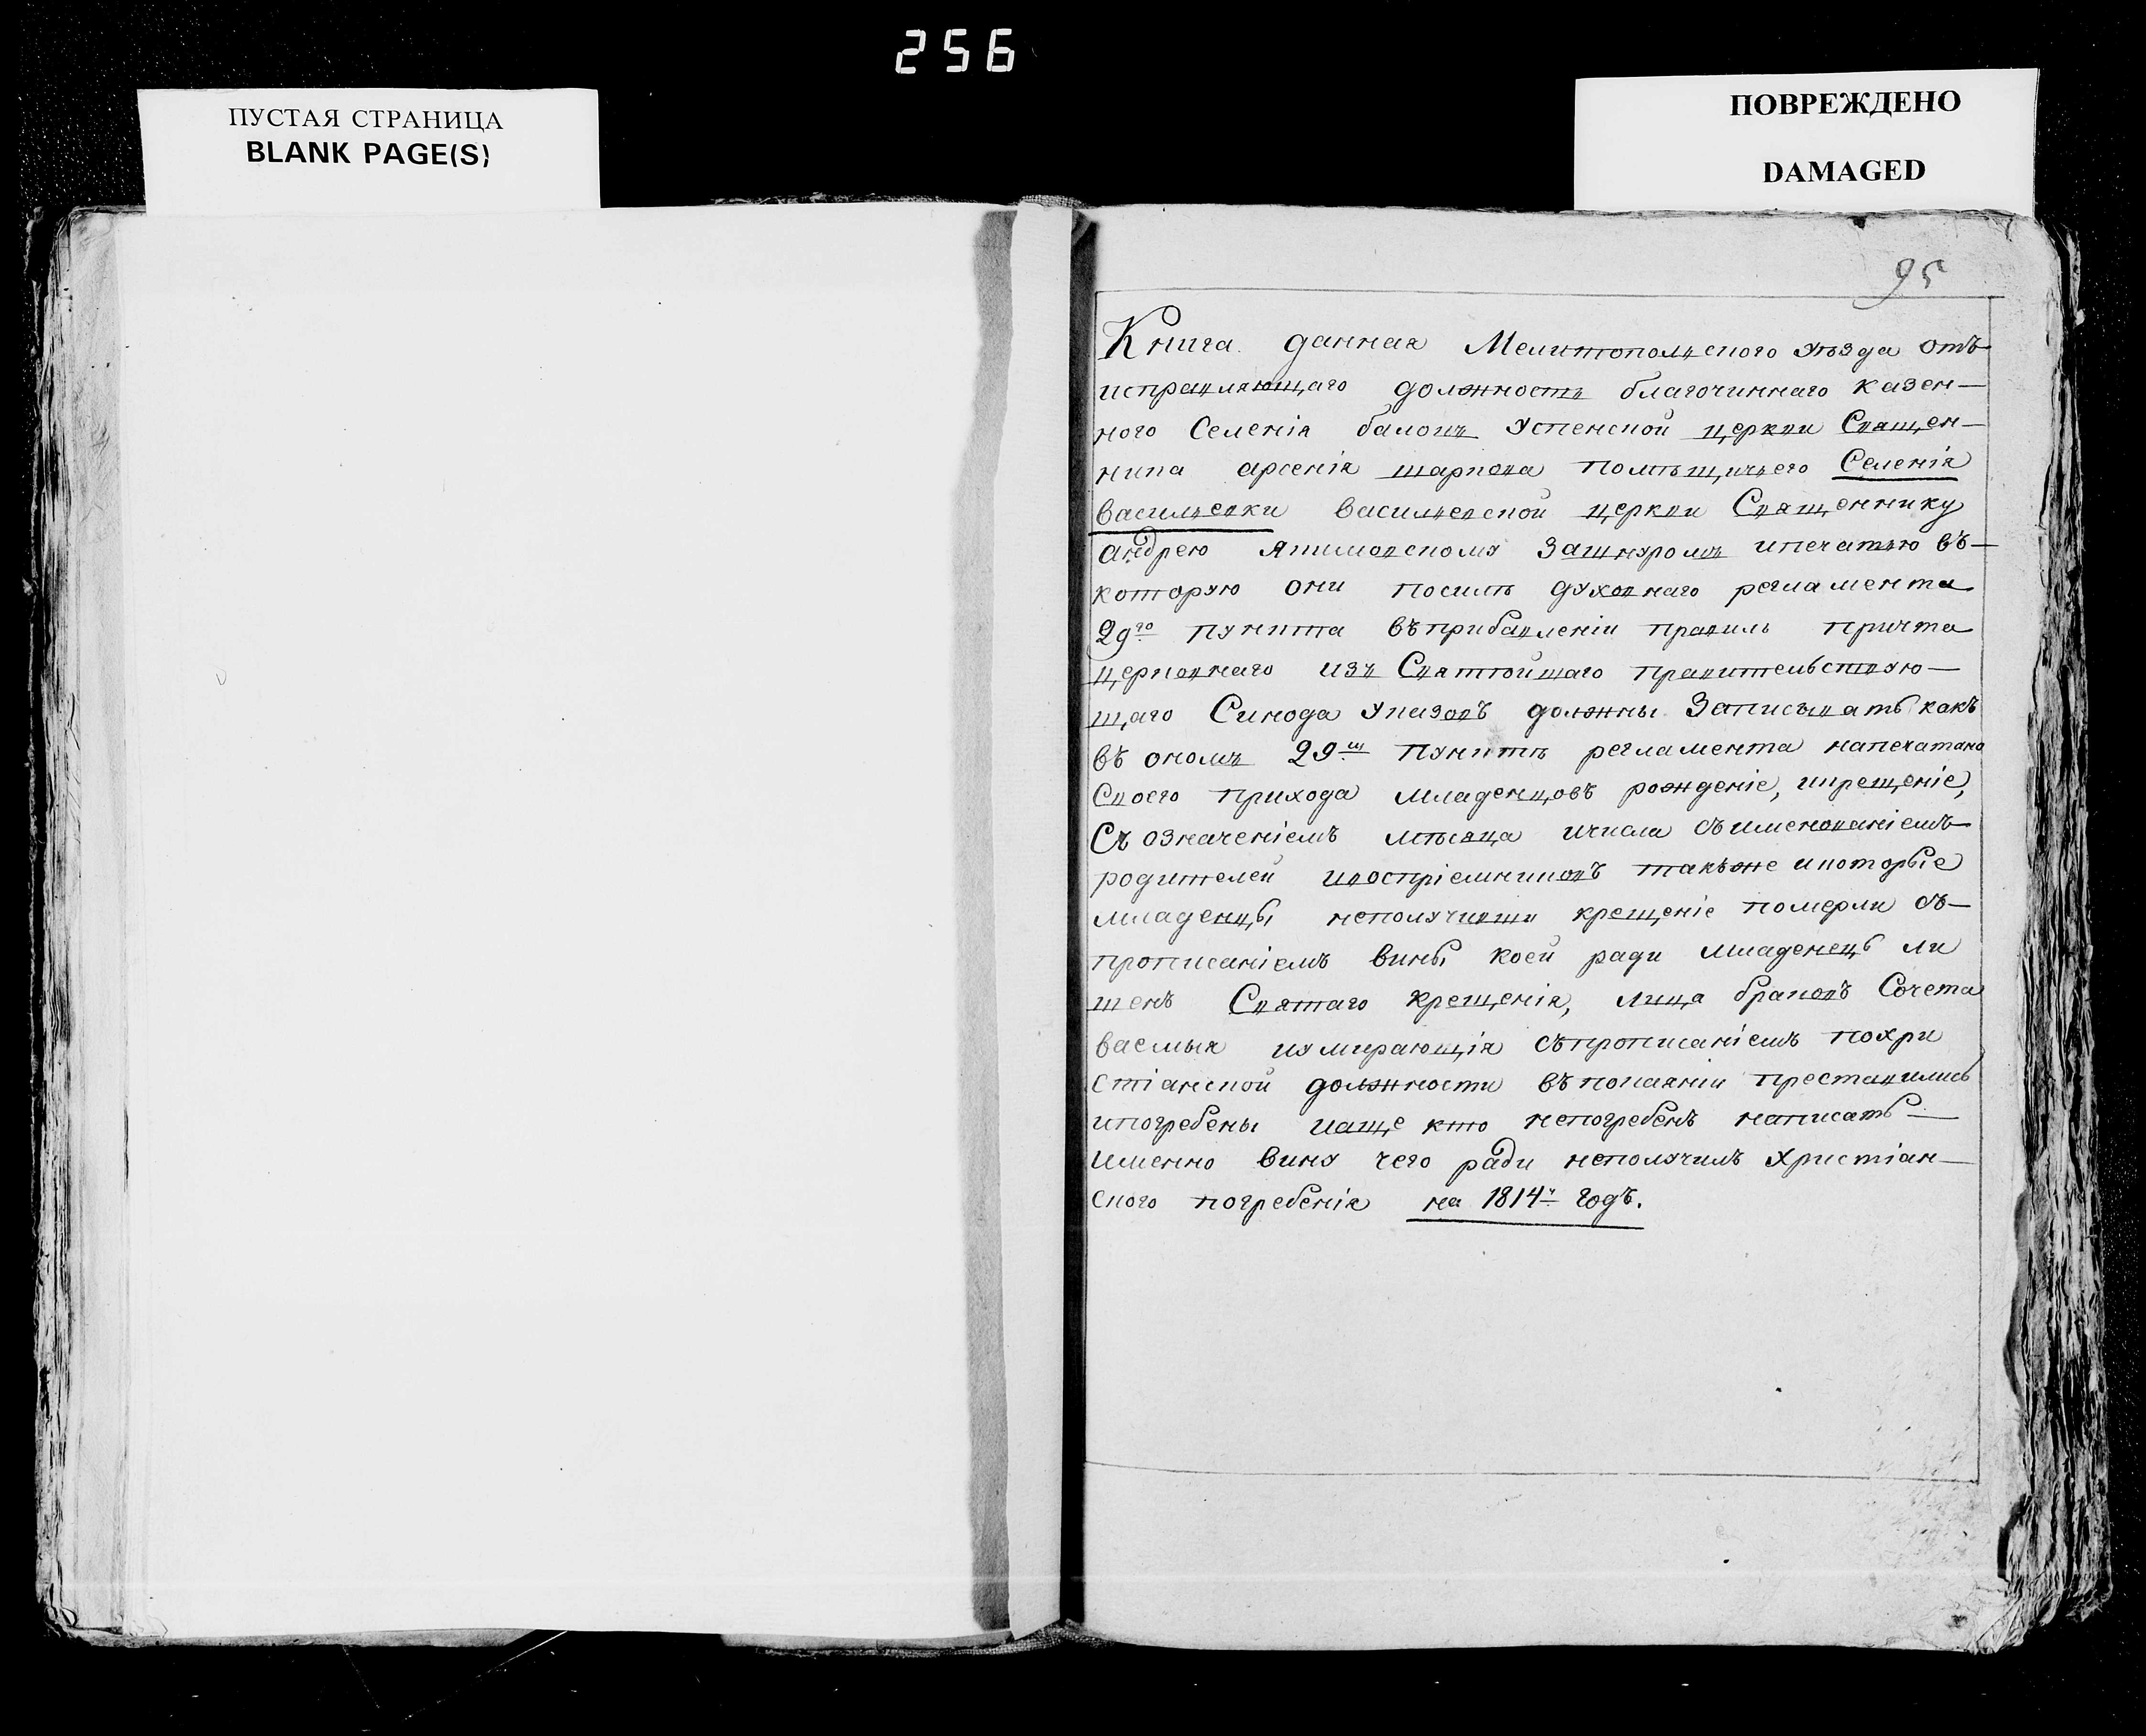 256
ПУСТАЯ СТРАНИЦА
BLANK PAGE(S)
ПОВРЕЖДЕНО
DAMAGED
95
Книга данная Мелитопольского уѣзда отъ
исправляющаго должность благочиннаго казен—
ного Селенія балокъ Успенской церкви Священ—
ника арсенія шаркова помѣщичьего Селенія
васильевки васильевской церкви Священнику
андрею Зашнуромъ ипечатью въ—
которую они посилѣ духовнаго регламента
29го пункта въприбавленіи правилъ причта
церковнаго изъ Святтойшаго правительствую—
щаго Синода указовъ должны Записывать какъ
въ ономъ 29м пунктѣ регламента напечатано
Своего прихода младенцовъ рожденіе, икрещеніе,
Съ означеніемъ мѣсяца ичисла съименованіемъ
родителей ивоспріемниковъ такъже икоторые
младенцы неполучивши крещеніе померли съ—
прописаніемъ вины коей ради младенецъ ли
шенъ Святаго крещенія, лица браковъ Сочета
ваемыя иумирающія съпрописаніемъ похри
стіанской должности въпокаяніи преставились
ипогребены иаще кто непогребенъ написать—
именно вину чего ради неполучилъ христіан—
ского погребенія на 1814й годъ.